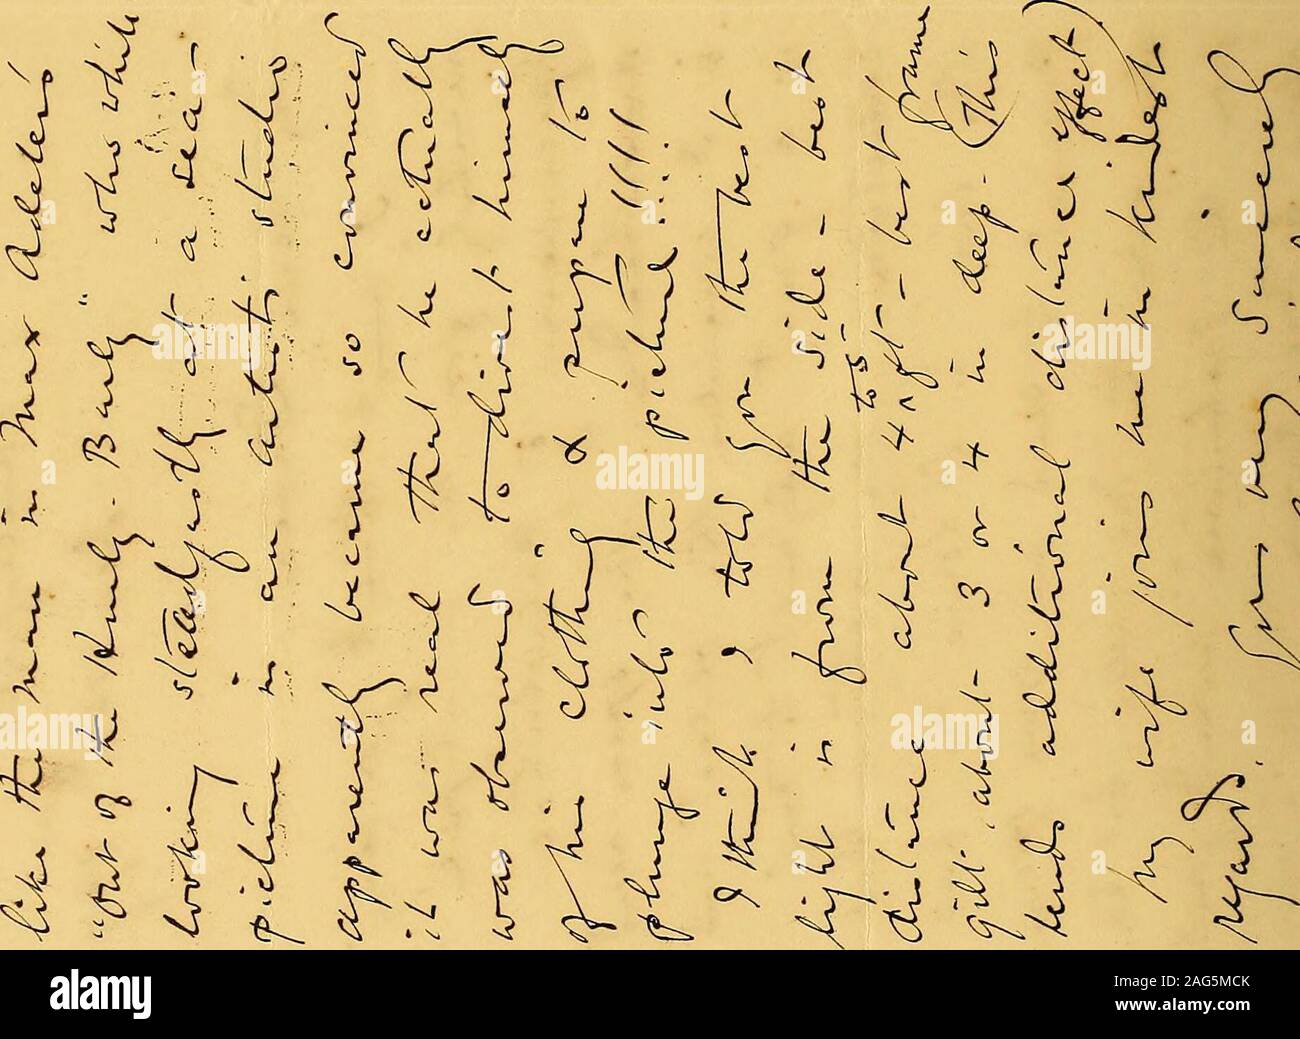 like the man in Max Adeler's
"Out of the Hurly-Burly" who while
looking steadfastly at a sea-
picture in an artist's studio
apparently became so convinced
it was real that he actually
was observed to divest himself
of his clothing & prepare to
plunge into the picture!!!!!
I think I told you the best
light is from the side - best
distance about 4 to 5 ft - best frame
gilt - about 3 or 4 in deep. (This
lends additional distance effect)
My wife joins me in kindest
regards.
Yours very sincerely
alamy
Image ID: 2AG5MCK
www.alamy.com